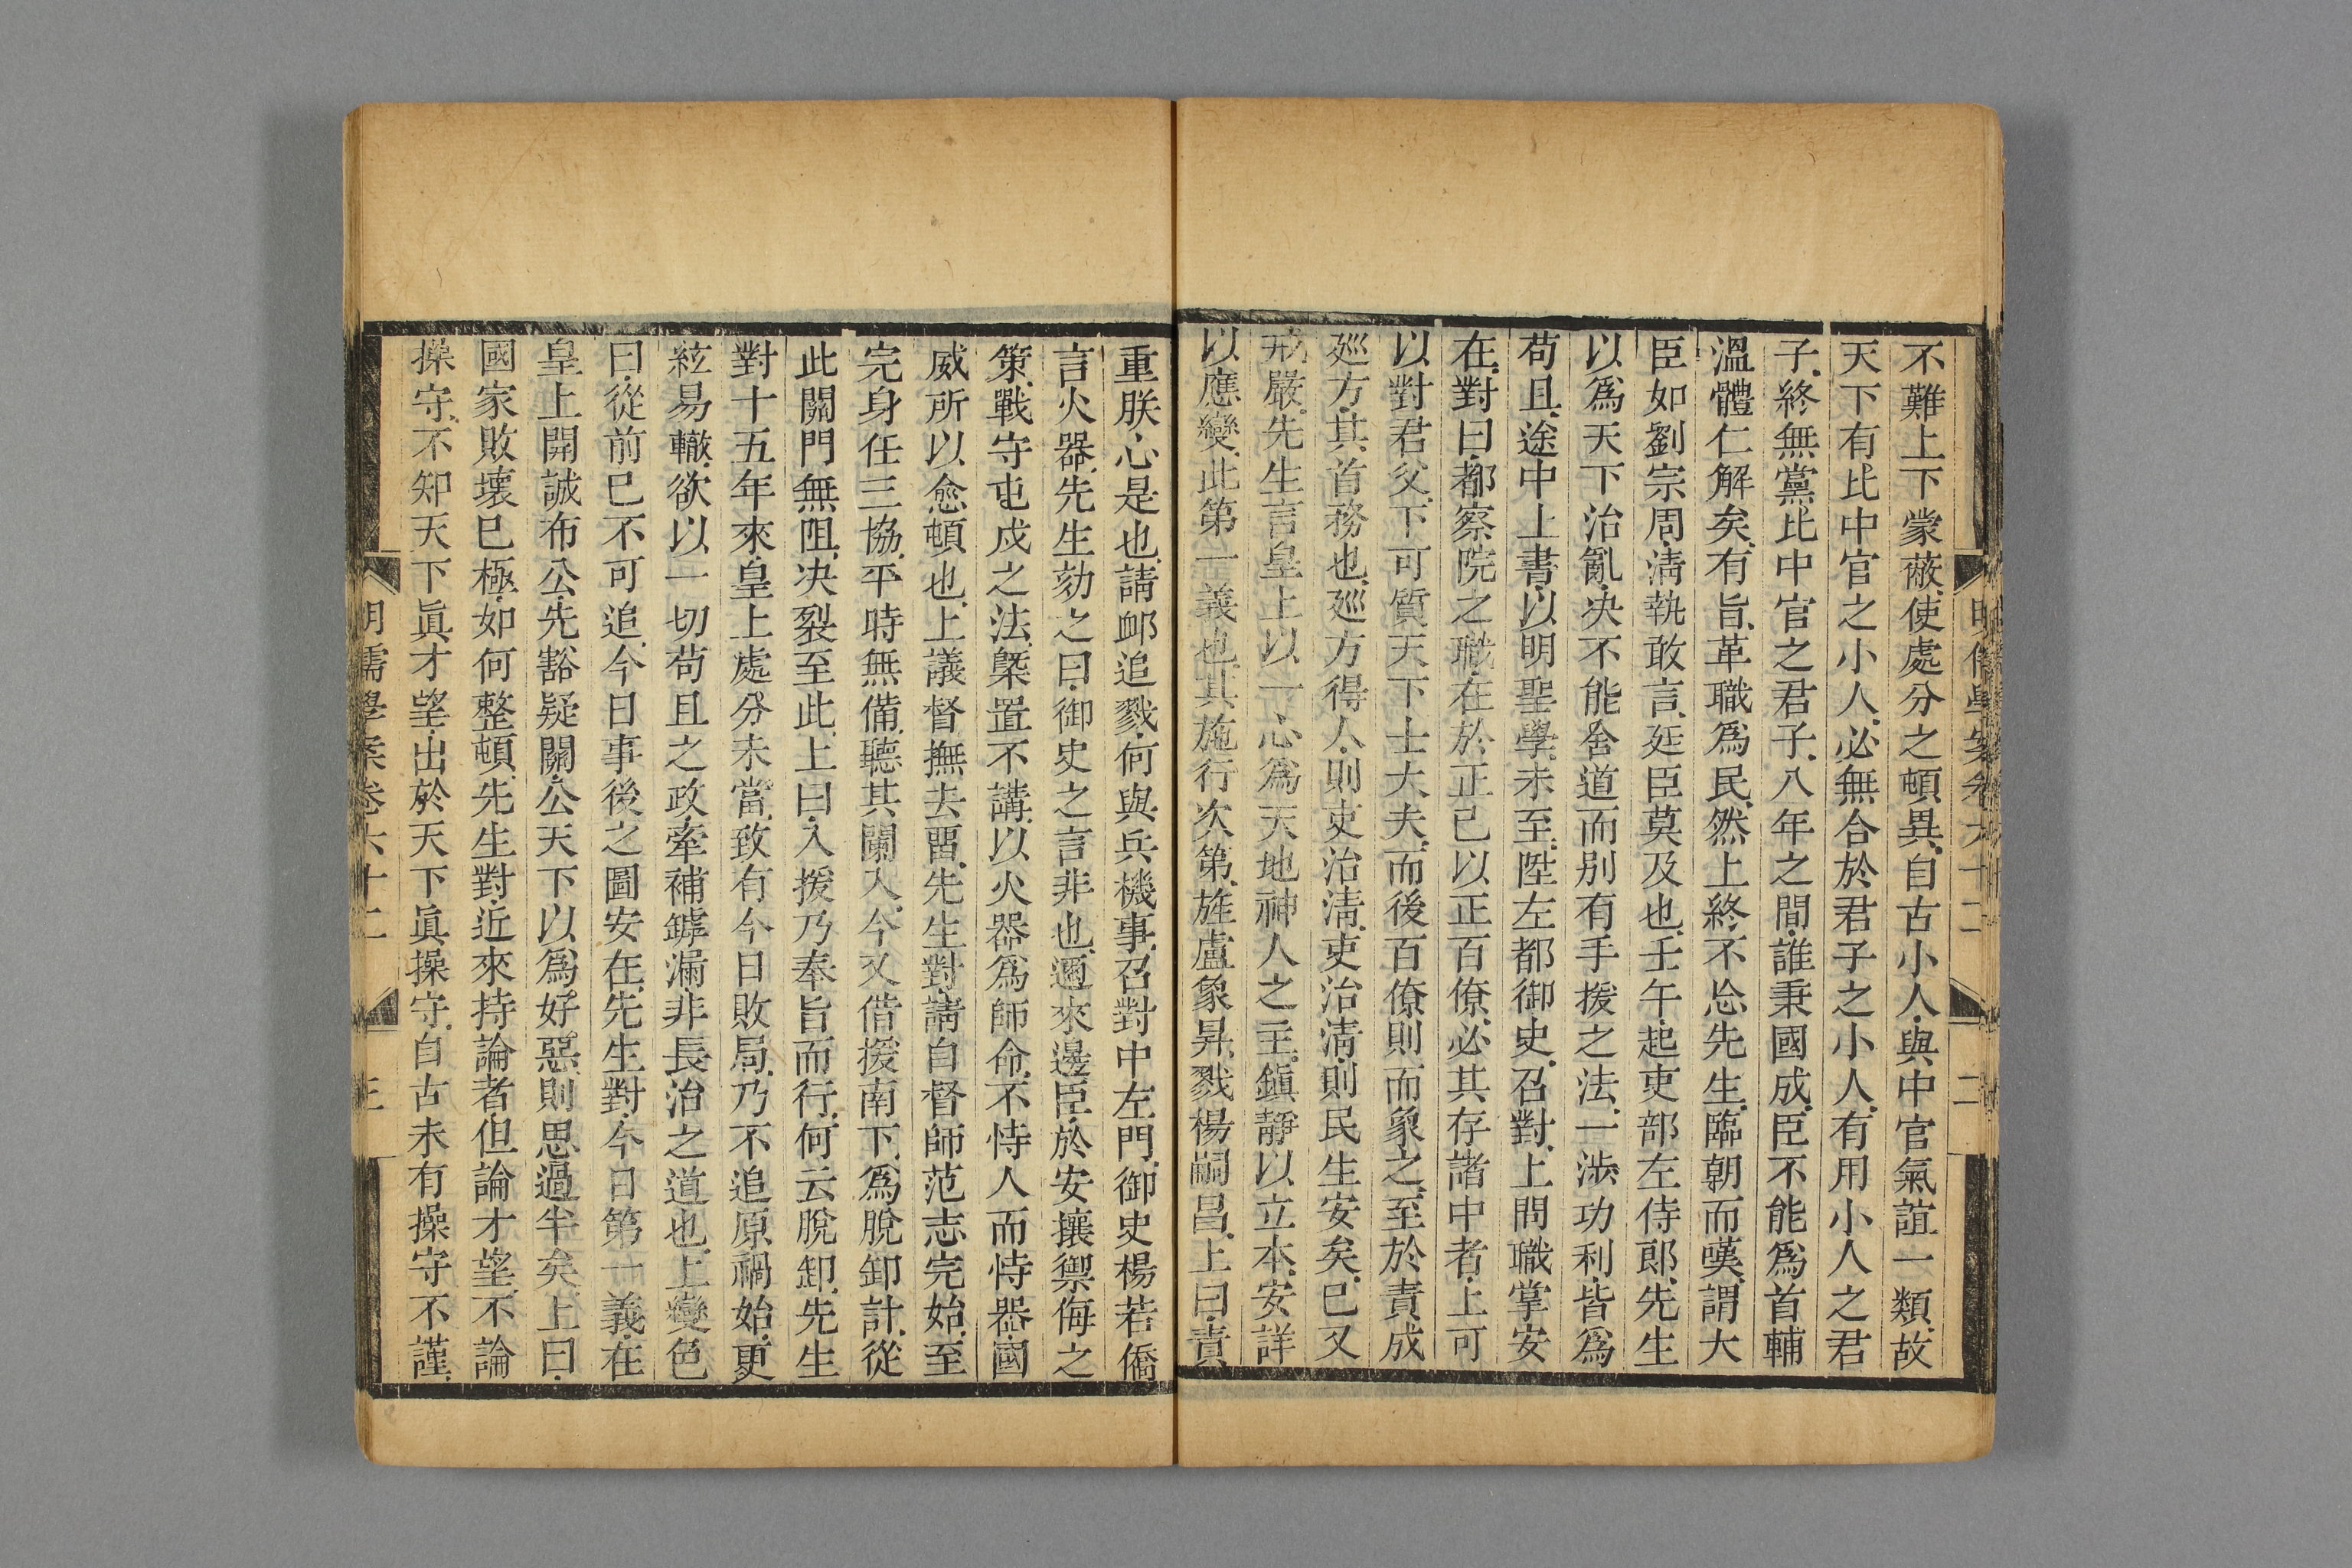 不難上下蒙蔽使處分之頓異自古小人與中官氣誼一類故
天下有比中官之小人必無合於君子之小人有用小人之君
子終無黨比中官之君子八年之間誰秉國成臣不能爲首輔
溫體仁解矣有旨革職爲民然上終不忘先生臨朝而嘆謂大
臣如劉宗周清執敢言廷臣莫及也壬午起吏部左侍郎先生
以爲天下治亂决不能舍道而别有手援之法一涉功利皆爲
苟且途中上書以明聖學未至陞左都御史召對上問職掌安
在對曰都察院之職在於正己以正百僚必其存諸中者上可
以對君父下可質天下士大夫而後百僚則而象之至於責成
廵方其首務也廵方得人則吏治清吏治清則民生安矣已又
戒嚴先生言皇上以一心爲天地神人之主鎮靜以立本安詳
以應變此第一義也其施行次第旌盧象昇戮楊嗣昌上曰責
重朕心是也請卹追戮何與兵機事召對中左門御史楊若僑
言火器先生劾之曰御史之言非也邇來邊臣於安攘禦侮之
策戰守屯戍之法槩置不講以火器爲師命不恃人而恃器國
威所以愈頓也上議督撫去畱先生對請自督師范志完始至
完身任三協平時無備聽其闌入今又借援南下爲脫卸計從
此關門無阻决裂至此上曰入援乃奉旨而行何云脫卸先生
對十五年來皇上處分未當致有今日敗局乃不追原禍始更
絃易轍欲以一切苟且之政牽補罅漏非長治之道也上變色
曰從前已不可追今日事後之圖安在先生對今日第一義在
皇上開誠布公先豁疑關公天下以爲好惡則思過半矣上曰
國家敗壞已極如何整頓先生對近來持論者但論才望不論
操守不知天下眞才望出於天下眞操守自古未有操守不謹
明儒學案卷六十二 二
明儒學案卷六十二 三